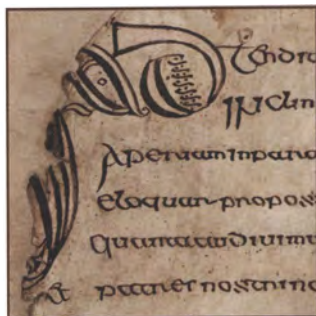 Adtendit
inclin
Aperiam in para
eloquar propos
quanta audivimu
et patres nostri n